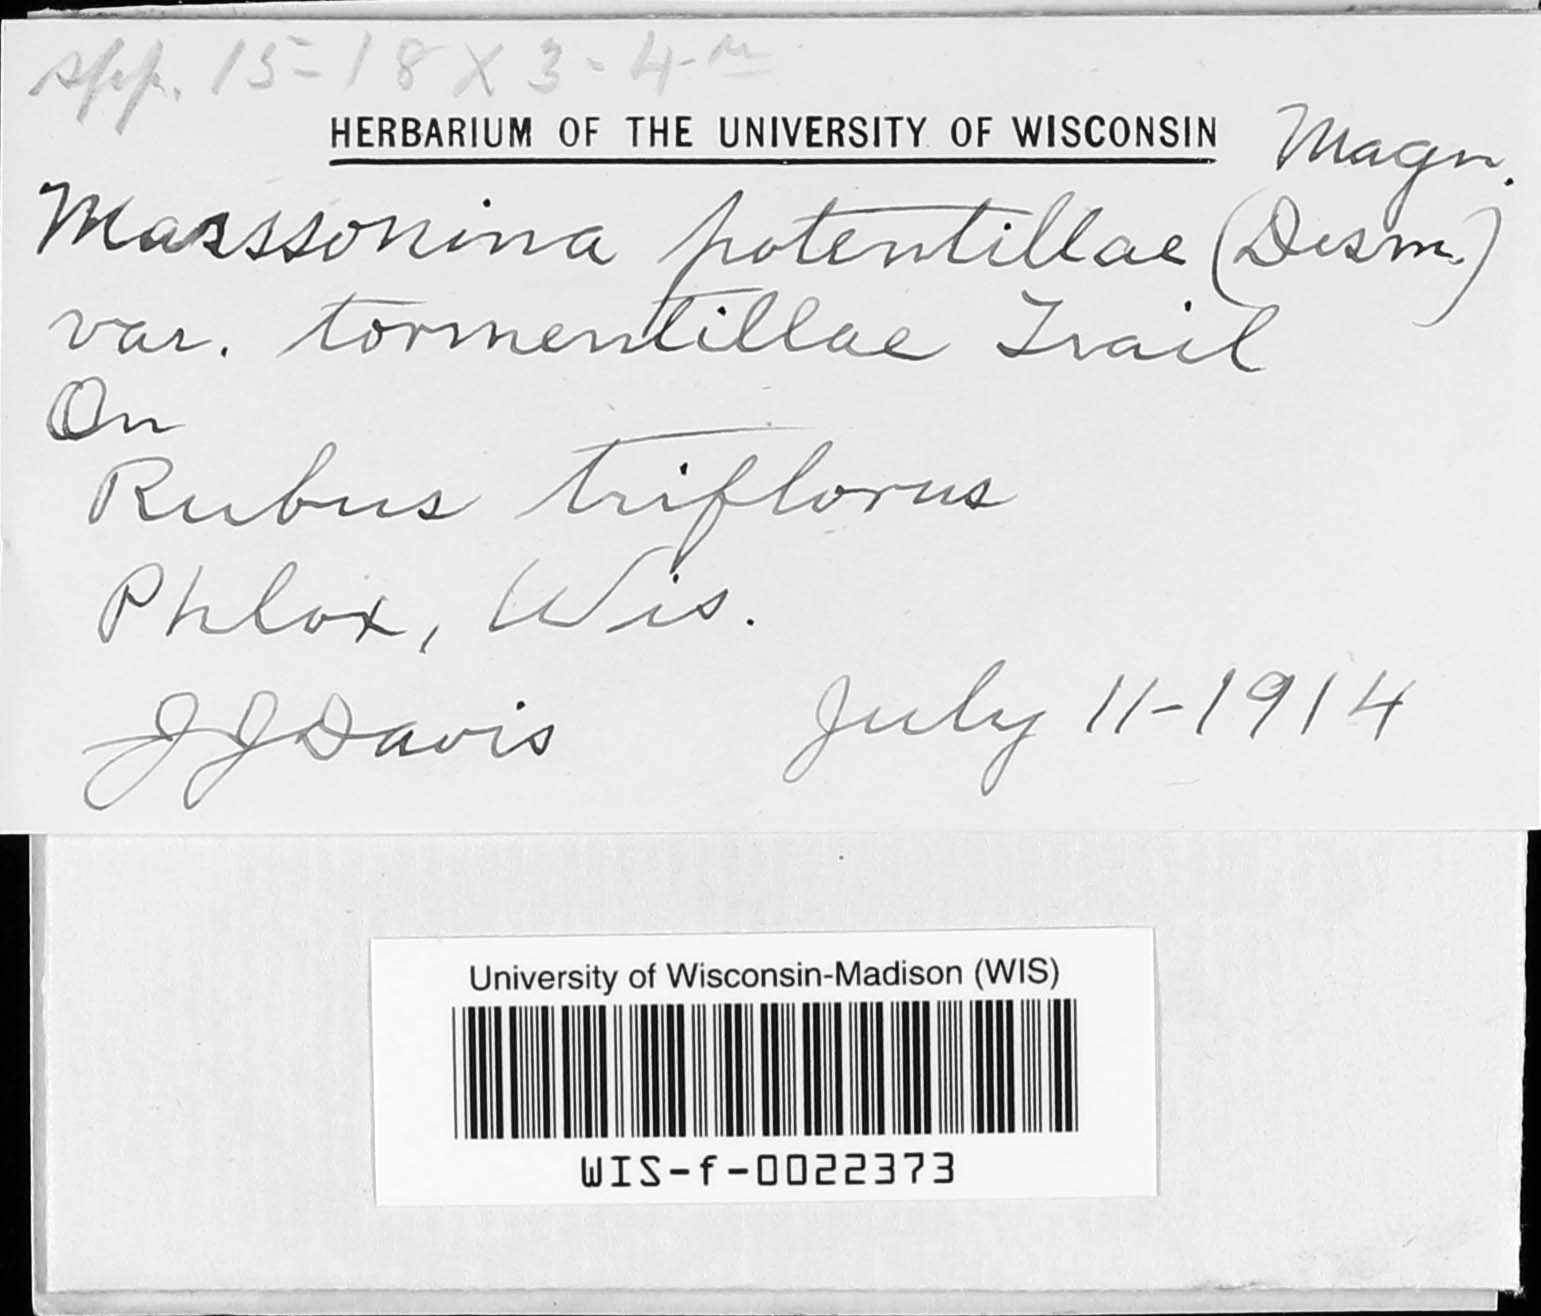 spp. 15-18 X 3-4 µ
HERBARIUM OF THE UNIVERSITY OF WISCONSIN
Magn.
Marssonina potentillae (Desm.)
var. tormentillae Trail
On
Rubus triflorus
Phlox, Wis.
J J Davis July 11-1914
University of Wisconsin-Madison (WIS)
WIS-f-0022373